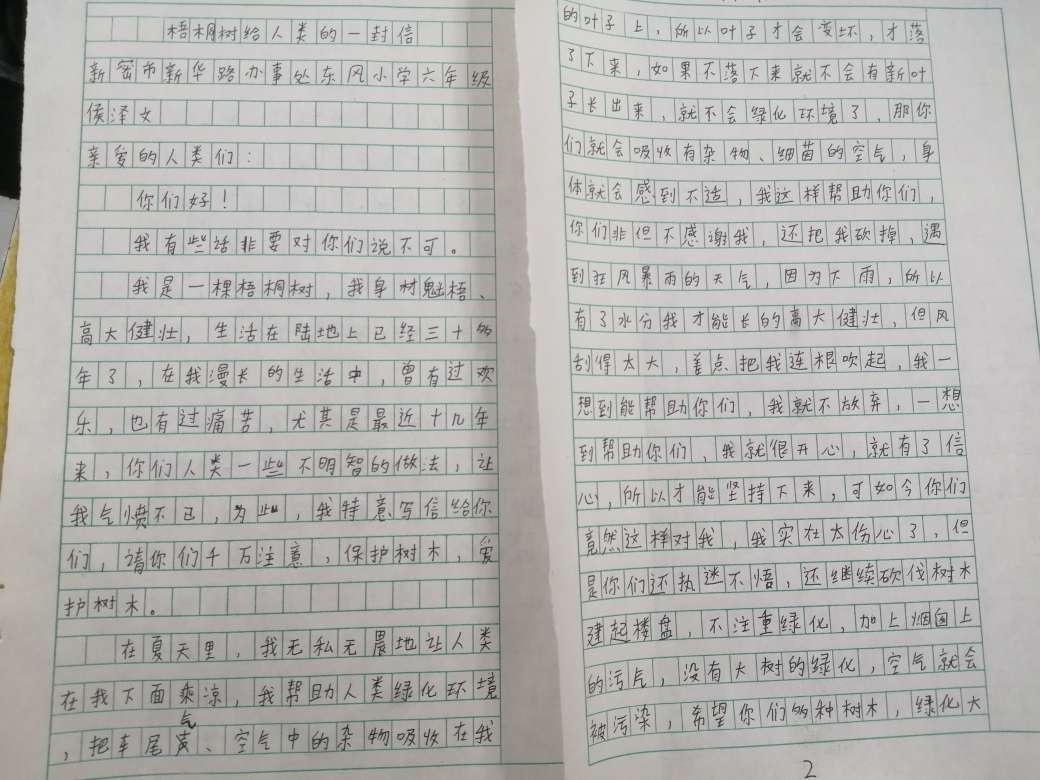 梧桐树给人类的一封信
新密市新华路办事处东风小学六年级
侯泽文
亲爱的人类们：
你们好！
我有些话非要对你们说不可。
我是一棵梧桐树，我身材魁梧、
高大健壮，生活在陆地上已经三十多
年了，在我漫长的生活中，曾有过欢
乐，也有过痛苦，尤其是最近十几年
来，你们人类一些不明智的做法，让
我气愤不已，为此，我特意写信给你
们，请你们千万注意，保护树木，爱
护树木。
在夏天里，我无私无畏地让人类
在我下面乘凉，我帮助人类绿化环境
，把车尾气、空气中的杂物吸收在我
的叶子上，所以叶子才会变坏，才落
了下来，如果不落下来就不会有新叶
子长出来，就不会绿化环境了，那你
们就会吸收有杂物、细菌的空气，身
体就会感到不适，我这样帮助你们，
你们非但不感谢我，还把我砍掉，遇
到狂风暴雨的天气，因为下雨，所以
有了水分我才能长的高大健壮，但风
刮得太大，差点把我连根吹起，我一
想到能帮助你们，我就不放弃，一想
到帮助你们，我就很开心，就有了信
心，所以才能坚持下来，可如今你们
竟然这样对我，我实在太伤心了，但
是你们还执迷不悟，还继续砍伐树木
建起楼盘，不注重绿化，加上烟囱上
的污气，没有大树的绿化，空气就会
被污染，希望你们多种树木，绿化大
2